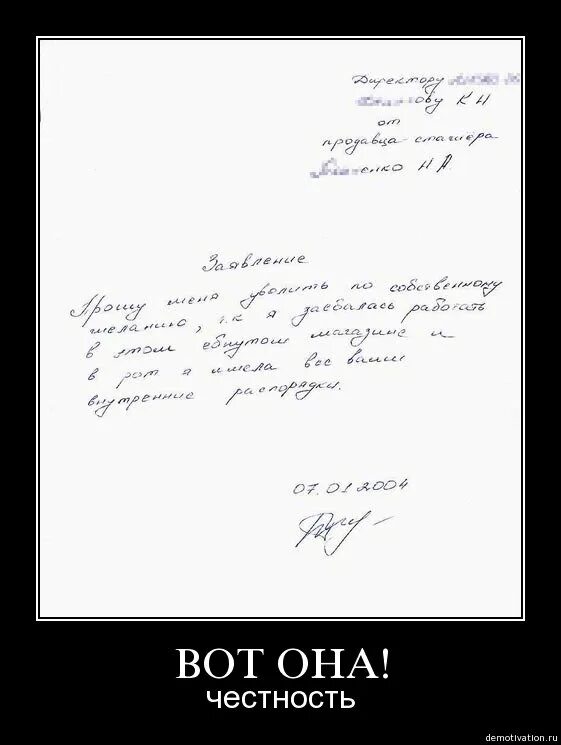 Директору
ову К Н
от
продавца-стажёра
енко Н А.
Заявление
Прошу меня уволить по собственному
желанию, т.к я заебалась работать
в этом ебнутом магазине и
в рот я имела все ваши
внутренние распорядки.
07.01 2004
ВОТ ОНА!
честность
demotivation.ru